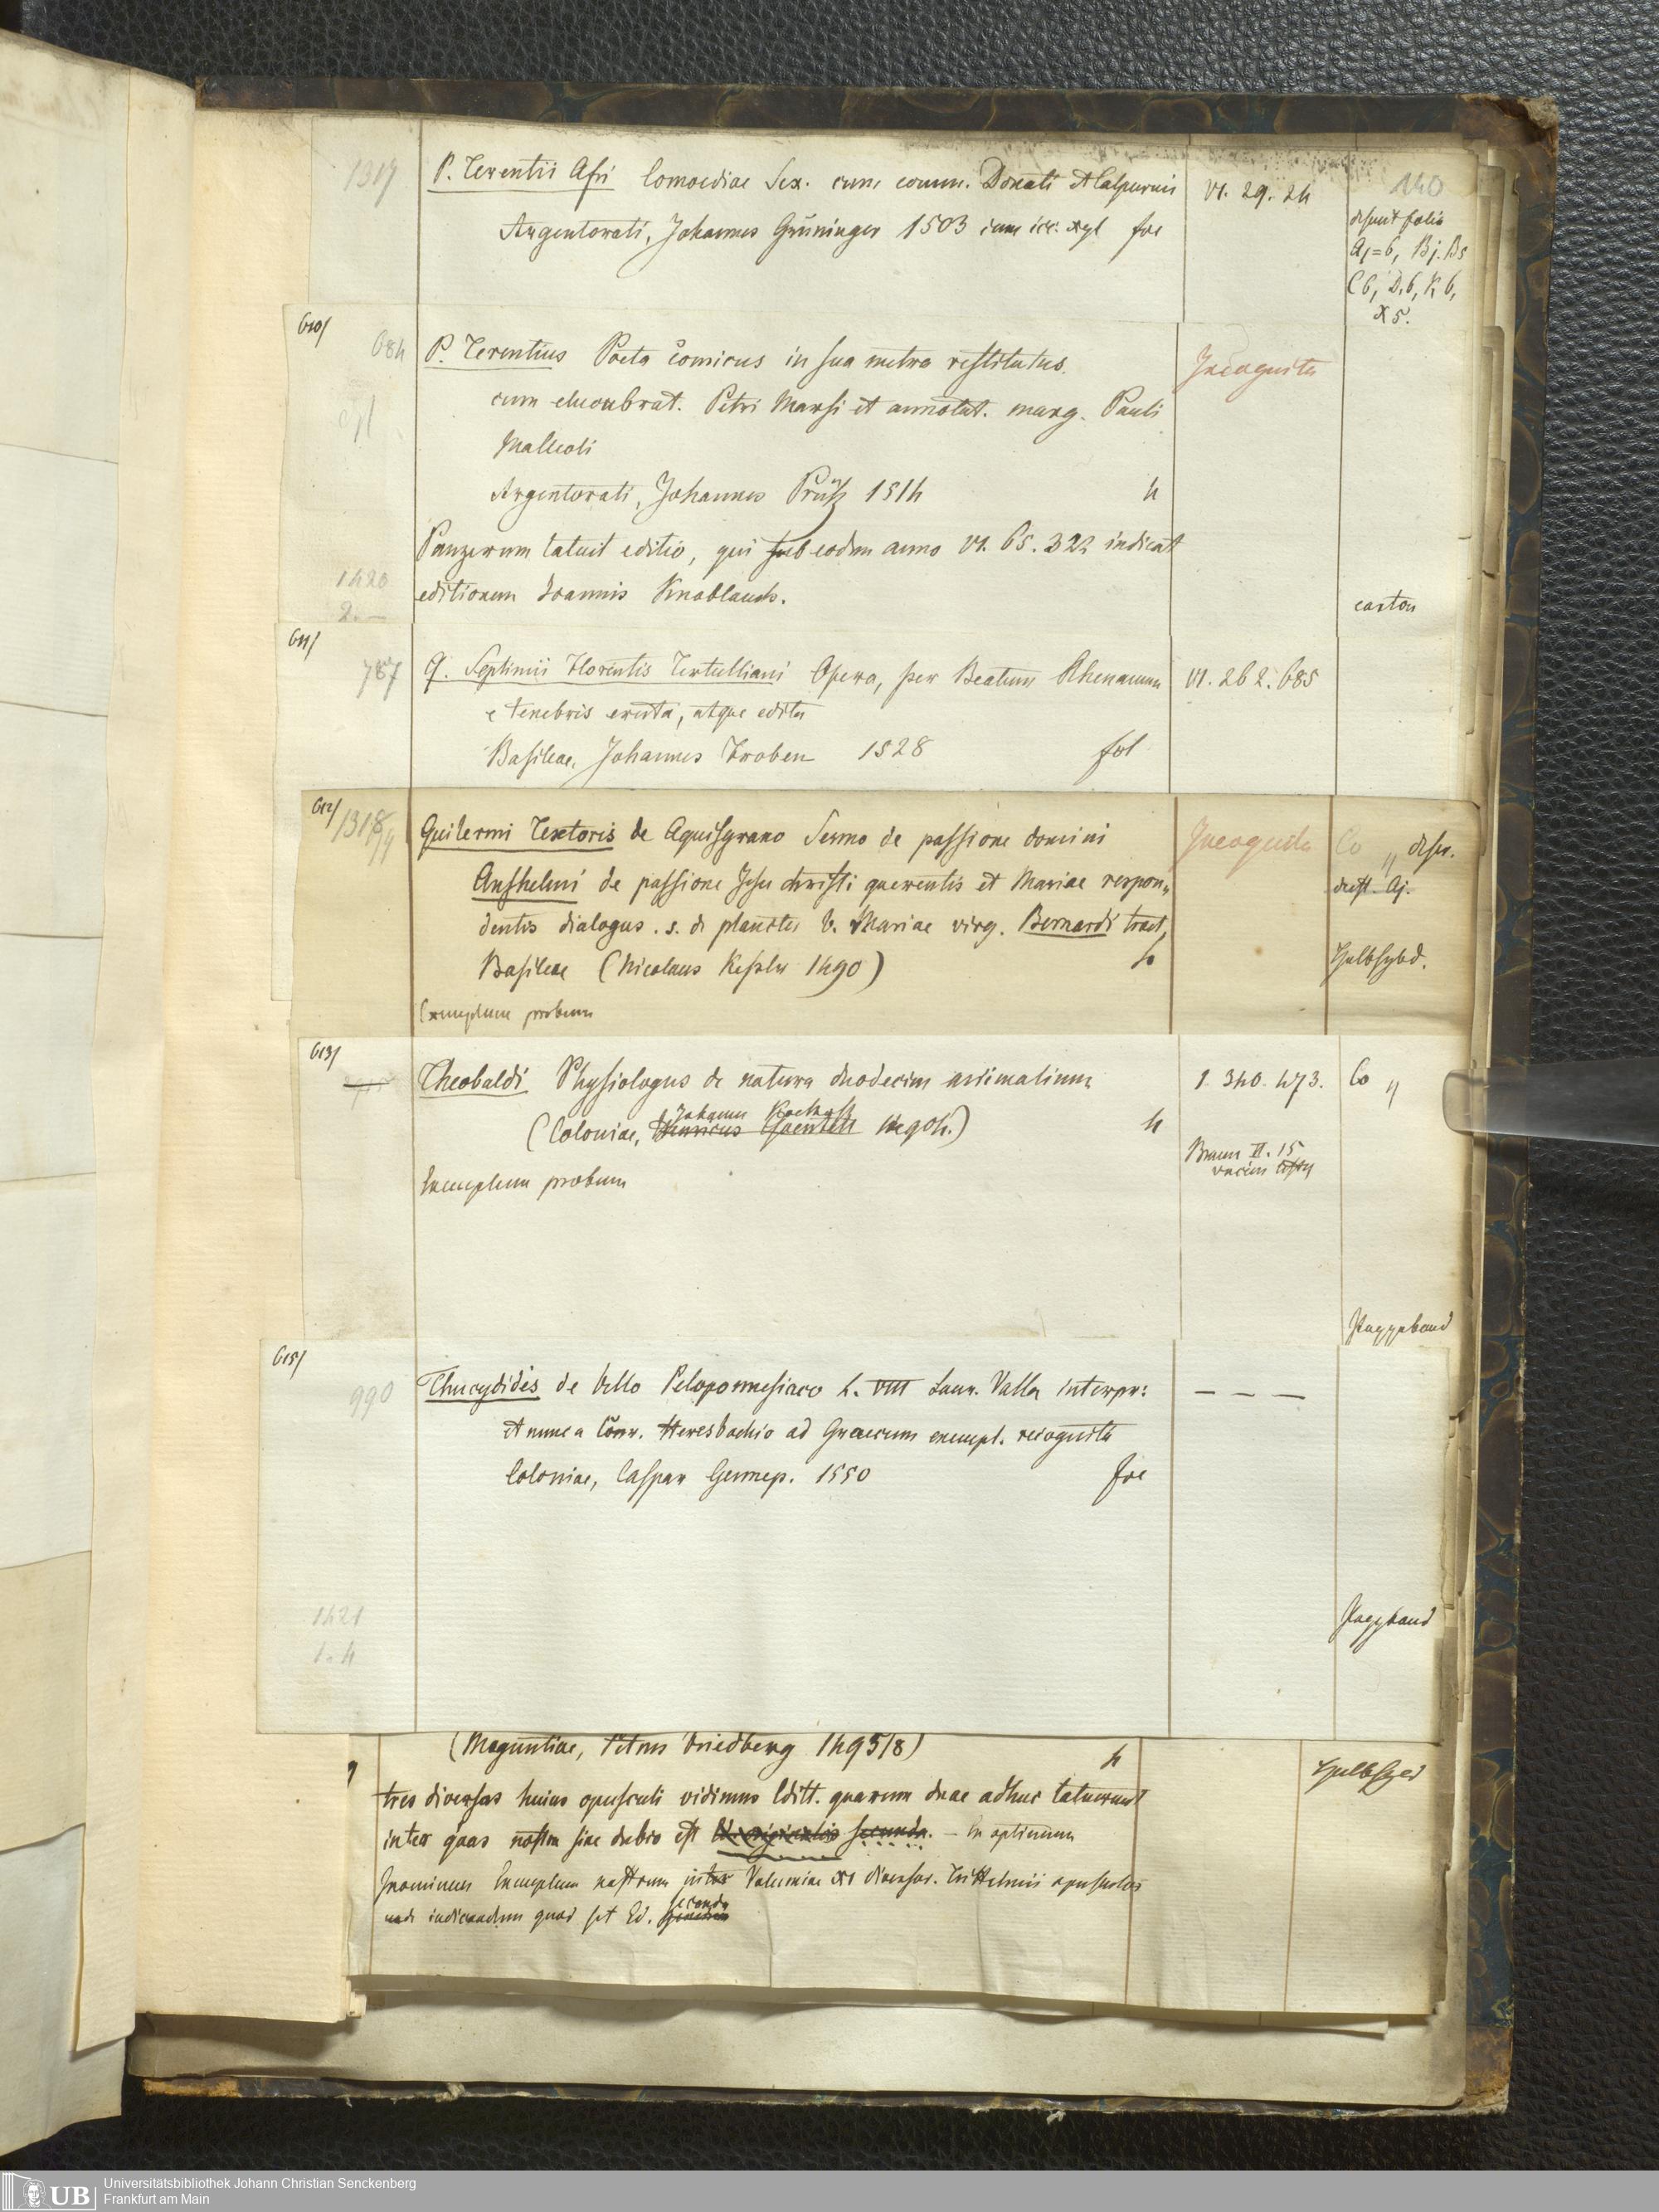 1317
P. Terentii Afri Comoediae Sex. cum comm. Donati et Calpurnii
VI. 29. 24
140
Argentorati, Johannes Grüninger 1503 cum icc. xyl fol
desunt folia
Aj=6, Bj. B5
C6, D.6, K 6,
X 5.
610/
684
P. Terentius Poeta Comicus in sua metra restitutus.
Incognita
cum elucubrat. Petri Marsi et annotat. marg. Pauli
Malleoli
Argentorati, Johannes Prüß 1514 4
Panzerum latuit editio, qui sub eodem anno VI. 65. 322 indicat
1420
editionem Joannis Knoblauch.
2.—
carton
611/
787
Q. Septimii Florentis Tertulliani Opera, per Beatum Rhenanum
VI. 262. 685
e tenebris eruta, atque edita
Basileae, Johannes Froben 1528 fol
612/
1318/
Guilermi Textoris de Aquisgrano Sermo de passione domini
Incognita
Co „ desu.
Anshelmi de passione Jesu christi querentis et Mariae respon„
dest. Aj.
dentis dialogus. s. de planctu b. Mariae virg. Bernardi tract,
Basileae (Nicolaus Kesler 1490) 4
Halbfzbd.
Exemplum probum
613/
Theobaldi Physiologus de natura duodecim animalium
1. 340. 473.
Co „
Johann Koelhoff
(Coloniae, Henricus Quentell 1490 4.) 4
Braun II. 15
Exemplum probum
Pappband
615/
990
Thucydides de bello Peloponnesiaco L. VIII Laur. Valla interpr:
— — —
et nunc a Conr. Heresbachio ad Graecum exempl. recognita
Coloniae, Caspar Gennep. 1550 fol
1421
1.4
Pappband
(Maguntiae, Petrus Friedberg 1495/8) 4
Halbfzbd
tres diversas huius opusculi vidimus Editt. quarum duae adhuc latuerunt
inter quas nostra sine dubio est Ed. originalis secunda. — In optimum
Exemplum nostrum inter Volumine XI diversor. Trithemii opusculor
secunda
indicandum quod sit Ed.
Universitätsbibliothek Johann Christian Senckenberg
Frankfurt am Main
UB